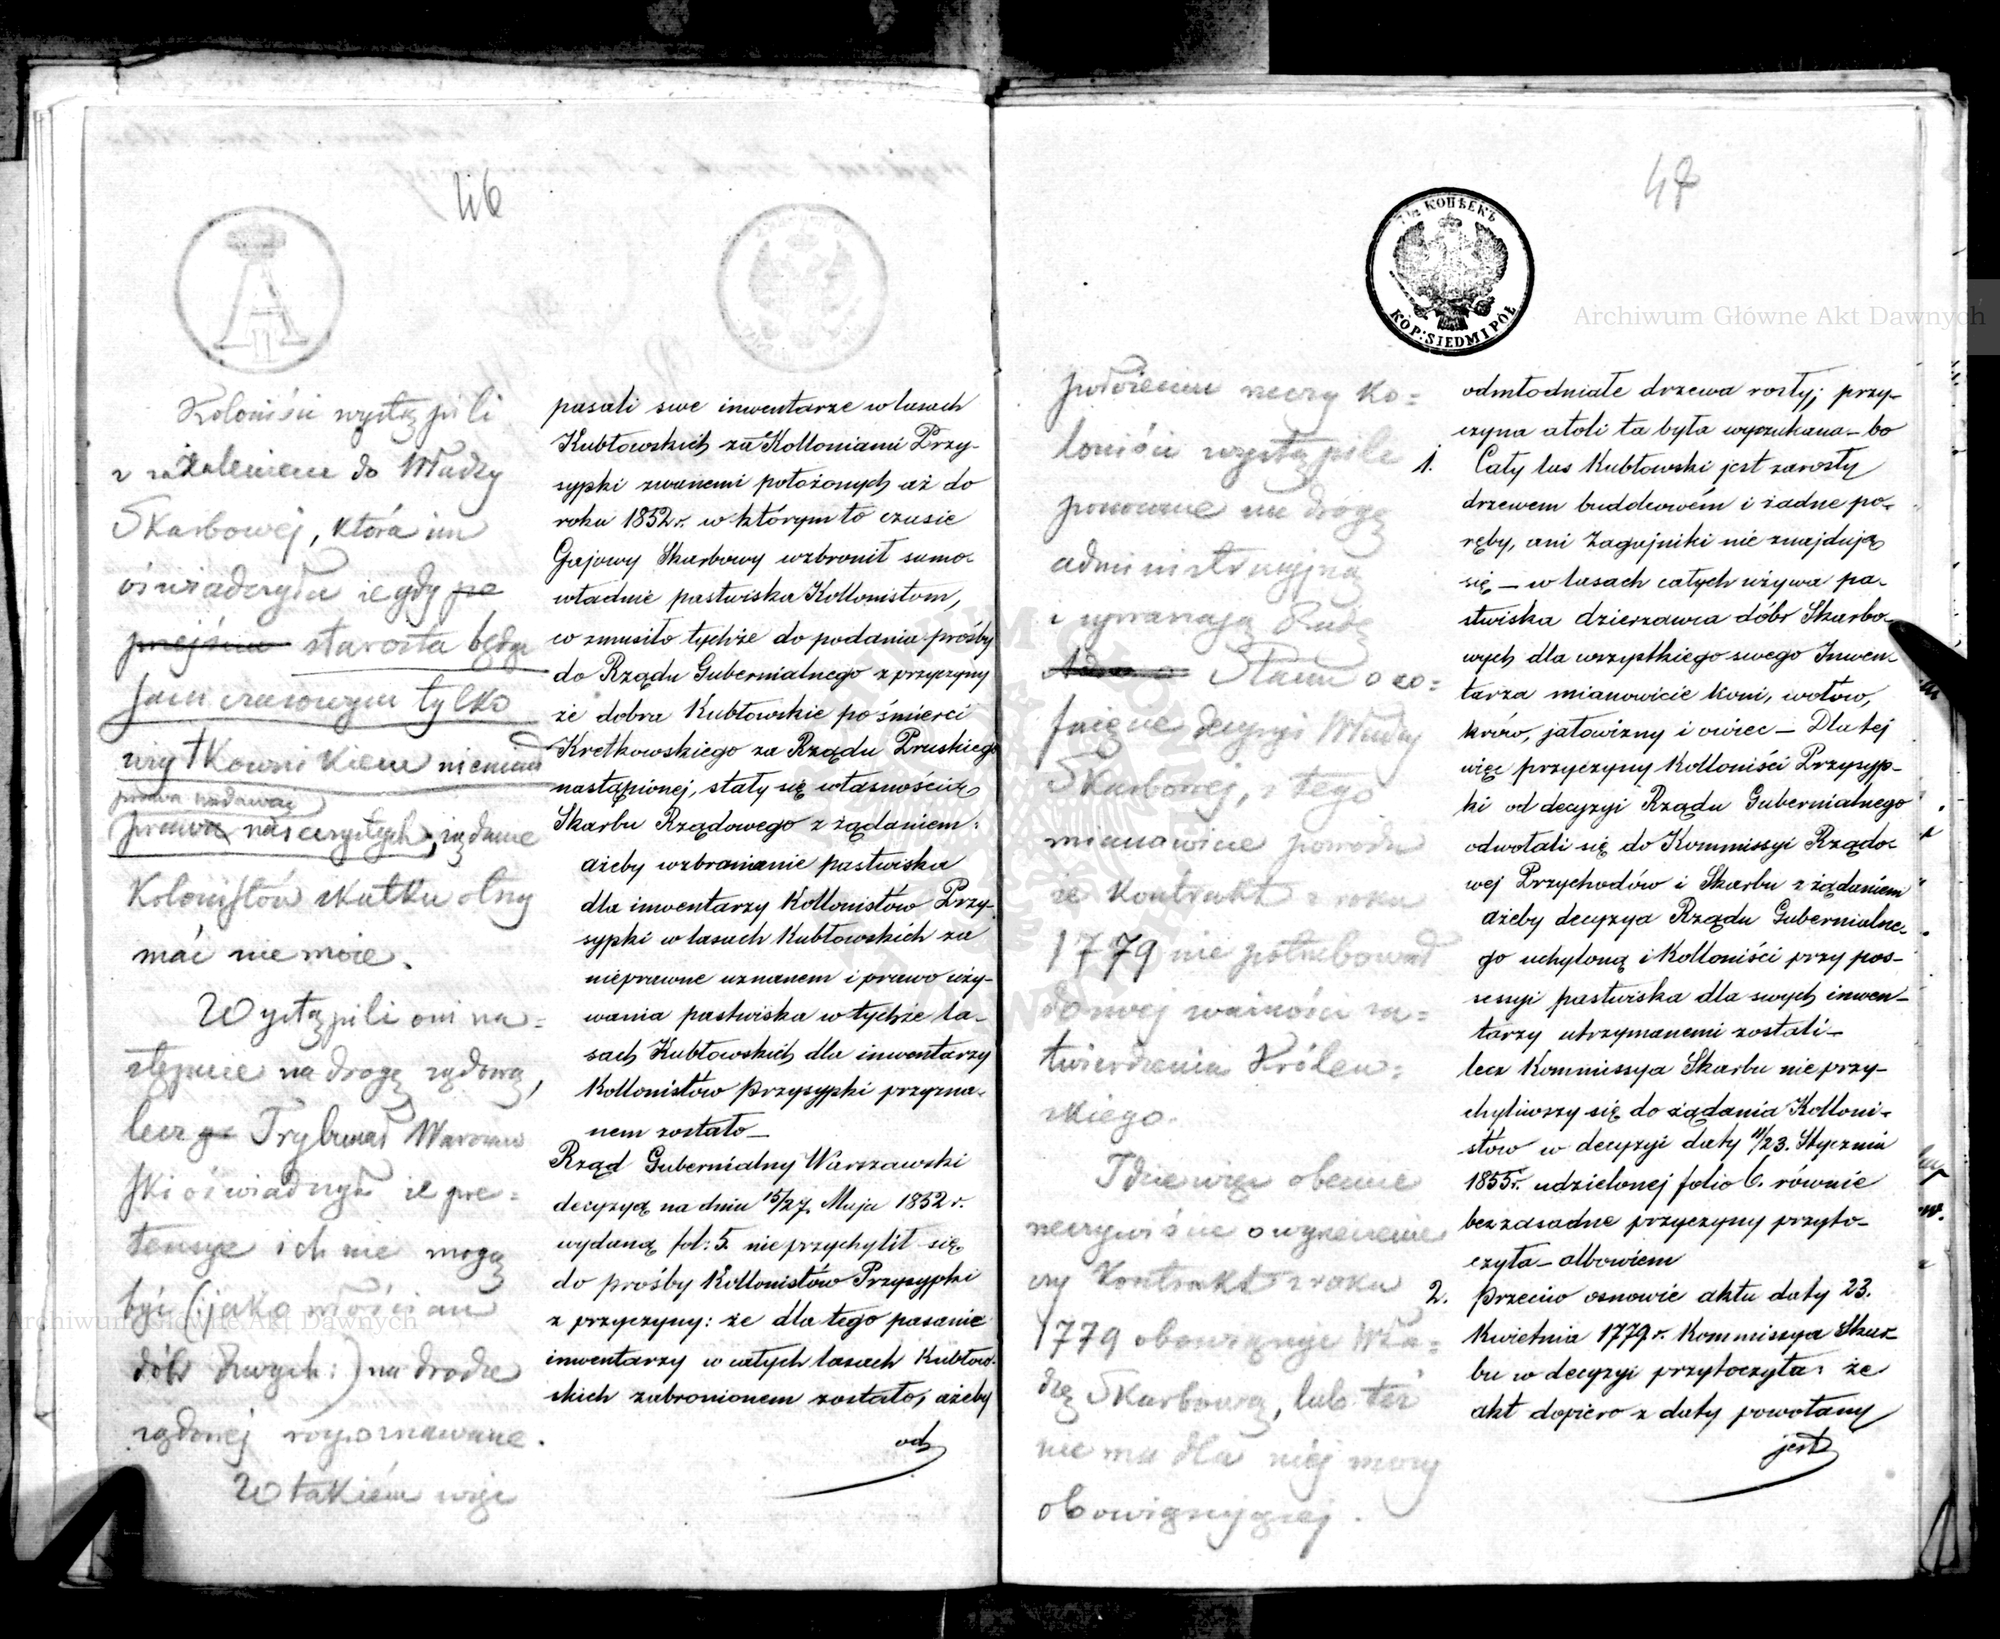 46
Koloniści wystąpili
z zażaleniem do Władzy
Skarbowej, która im
oświadczyła że gdy pe
przejścia starosta będąc
jako czasowym tylko
użytkownikiem nie mógł
prawa nadawać
prawa nas wieczystych, żądanie
Kolonistów skutku otrzy
mać nie może.
Wystąpili oni na=
stępnie na drogę sądową,
lecz Trybunał Warszaw
ski oświadczył że pre=
tensye ich nie mogą
być (:jako włościan
dóbr Rwych:) na drodze
sądowej rozpoznawane.
W takiém więc
pasali swe inwentarze w lasach
Kubłowskich za Kolloniami Przy-
sypki zwanemi położonych aż do
roku 1852 r. w którym to czasie
Gajowy Skarbowy wzbronił samo-
władnie pastwiska Kollonistom,
co zmusiło tychże do podania prośby
do Rządu Gubernialnego z przyczyny
że dobra Kubłowskie po śmierci
Kretkowskiego za Rządu Pruskiego
nastąpionej, stały się własnością
Skarbu Rządowego z żądaniem:
ażeby wzbranianie pastwiska
dla inwentarzy Kollonistów Przy-
sypki w lasach Kubłowskich za
nieprawne uznanem i prawo uży-
wania pastwiska w tychże la-
sach Kubłowskich dla inwentarzy
Kollonistów Przysypki przyzna-
nem zostało_
Rząd Gubernialny Warszawski
decyzyą na dniu 15/27 Maja 1852 r.
wydaną fol: 5. nie przychylił się
do prośby Kollonistów Przysypki
z przyczyny: że dla tego pasanie
inwentarzy w całych lasach Kubłow-
skich zabronionem zostało, ażeby
od
47
7½ КОПѢЕКЪ
KOP: SIEDM I PÓŁ
Archiwum Główne Akt Dawnych
położeniu rzeczy Ko=
loniści wystąpili
ponownie na drogę
administracyjną
i upraszają Radę
Stanu o co=
fnięcie decyzyi Władzy
Skarbowej, z tego
mianowicie powodu
że Kontrakt z roku
1779 nie potrzebował
do swej ważności za=
twierdzenia Królew=
skiego.
Idzie więc obecnie
rzeczywiście o
czy Kontrakt z roku
1779 obowiązuje Wła=
dzę Skarbową, lub też
nie ma dla niéj mocy
obowiązującej.
odmłodniałe drzewa rosły; przy-
czyna atoli ta była wyszukana_ bo
1. Cały las Kubłowski jest zarosły
drzewem buddcowém i żadne po-
ręby, ani Zagajniki nie znajdują
się _ w lasach całych używa pa-
stwiska dzierżawca dóbr Skarbo-
wych dla wszystkiego swego Inwen-
tarza mianowicie koni, wołów,
krów, jałowizny i owiec _ Dla tej
więc przyczyny Kolloniści Przysyp-
ki od decyzyi Rządu Gubernialnego
odwołali się do Kommissyi Rządo-
wej Przychodów i Skarbu z żądaniem
ażeby decyzya Rządu Gubernialne-
go uchyloną i Kolloniści przy pos-
sessyi pastwiska dla swych inwen-
tarzy utrzymanemi zostali_
lecz Kommissya Skarbu nie przy-
chyliwszy się do żądania Kolloni-
stów w decyzyi daty 11/23. Stycznia
1855 r. udzielonej folio 6. równie
bezzasadne przyczyny przyto-
czyła_ albowiem
2. Przeciw osnowie aktu daty 23.
Kwietnia 1779 r. Kommissya Skar-
bu w decyzyi przytoczyła: że
akt dopiero z daty powołany
jest
Archiwum Główne Akt Dawnych